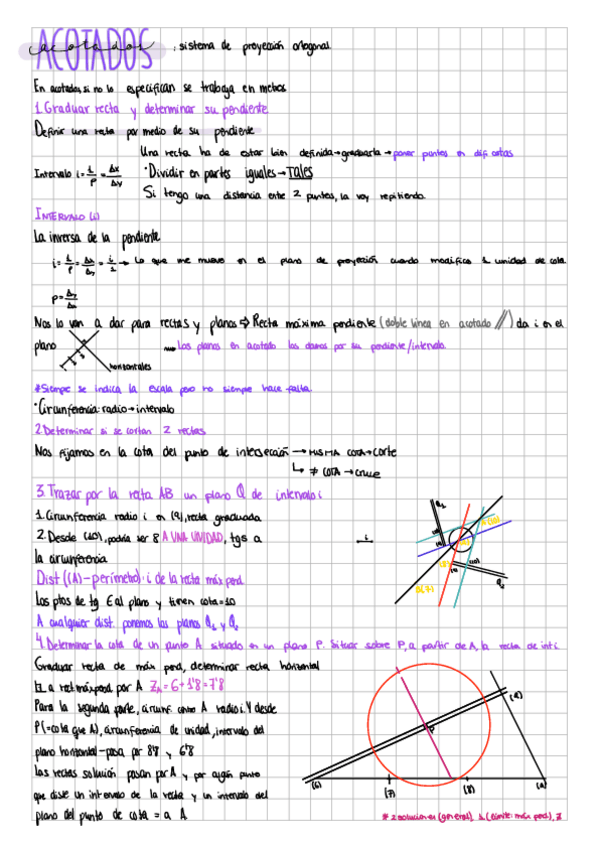 ACOTADOS
acotados : sistema de proyección ortogonal
En acotados, si no lo especifican se trabaja en metros
1. Graduar recta y determinar su pendiente
Definir una recta por medio de su pendiente
Una recta ha de estar bien definida → graduarla → poner puntos en dif. cotas
Intervalo i = 1/p = Δx/Δy · Dividir en partes iguales → TALES
Si tengo una distancia entre 2 puntos, la voy repitiendo.
INTERVALO (i)
La inversa de la pendiente
i = 1/p = Δx/Δy = i/1 → Lo que me muevo en el plano de proyección cuando modifico 1 unidad de cota
p = Δy/Δx
Nos lo van a dar para rectas y planos ⇒ Recta máxima pendiente (doble línea en acotado //) da i en el
plano
Los planos en acotado los damos por su pendiente/intervalo.
horizontales
*Siempre se indica la escala pero no siempre hace falta.
· Circunferencia: radio → intervalo
2. Determinar si se cortan 2 rectas
Nos fijamos en la cota del punto de intersección → MISMA COTA → Corte
↳ ≠ COTA → cruce
3. Trazar por la recta AB un plano Q de intervalo i
1. Circunferencia radio i en (9), recta graduada
2. Desde (10), podría ser 8 A UNA UNIDAD, tgs a
i
la circunferencia
Dist ((A) - perímetro): i de la recta máx pend
Los ptos de tg ∈ al plano y tienen cota=10
A cualquier dist. ponemos los planos Q₁ y Q₂
Q₁
A(10)
(10)
B(7)
Q₂
4. Determinar la cota de un punto A situado en un plano P. Situar sobre P, a partir de A, la recta de int i
Graduar recta de máx pend, determinar recta horizontal
⊥ a rect máx pend por A Zₐ = 6 + 1'8 = 7'8
Para la segunda parte, circunf. centro A radio i. Y desde
P (= cota que A), circunferencia de unidad, intervalo del
plano horizontal - pasa por 8'8 y 6'8
Las rectas solución pasan por A y por algún punto
que diste un intervalo de la recta y un intervalo del
plano del punto de cota = a A.
(6)
(7)
(8)
(9)
(A)
* 2 soluciones (general), 1 (límite: máx pend), ∄